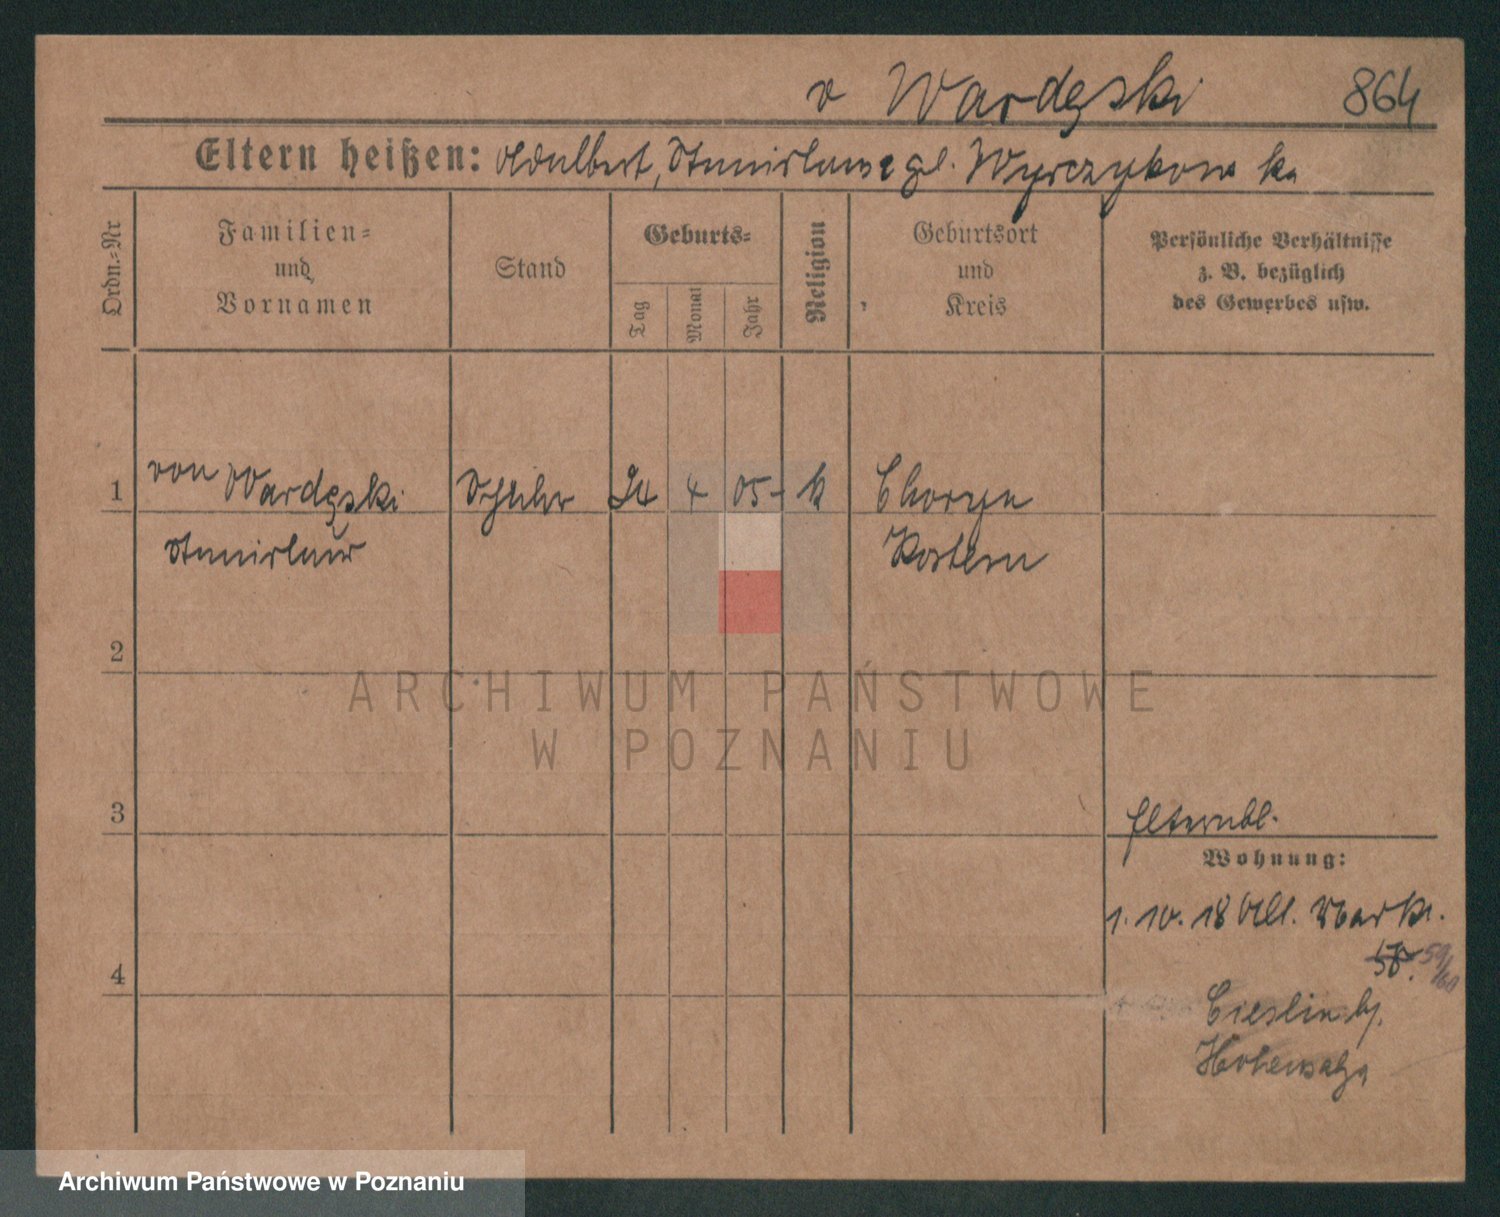 v Wardęski 864
Eltern heißen: Adalbert, Stanislawa gb. Wyrczykowska
Ordn.-Nr
Familien-
und
Vornamen
Stand
Geburts-
Tag
Monat
Jahr
Religion
Geburtsort
und
Kreis
Persönliche Verhältnisse
z. B. bezüglich
des Gewerbes usw.
1 von Wardęski Schüler 24 4 05- k Choryn
Stanislaus Kosten
2
ARCHIWUM PAŃSTWOWE
W POZNANIU
3
Elternbl.
Wohnung:
1. 10. 18 Alt. Markt.
58. 59/60
4
Cieslin b/.
Hohensalza
Archiwum Państwowe w Poznaniu